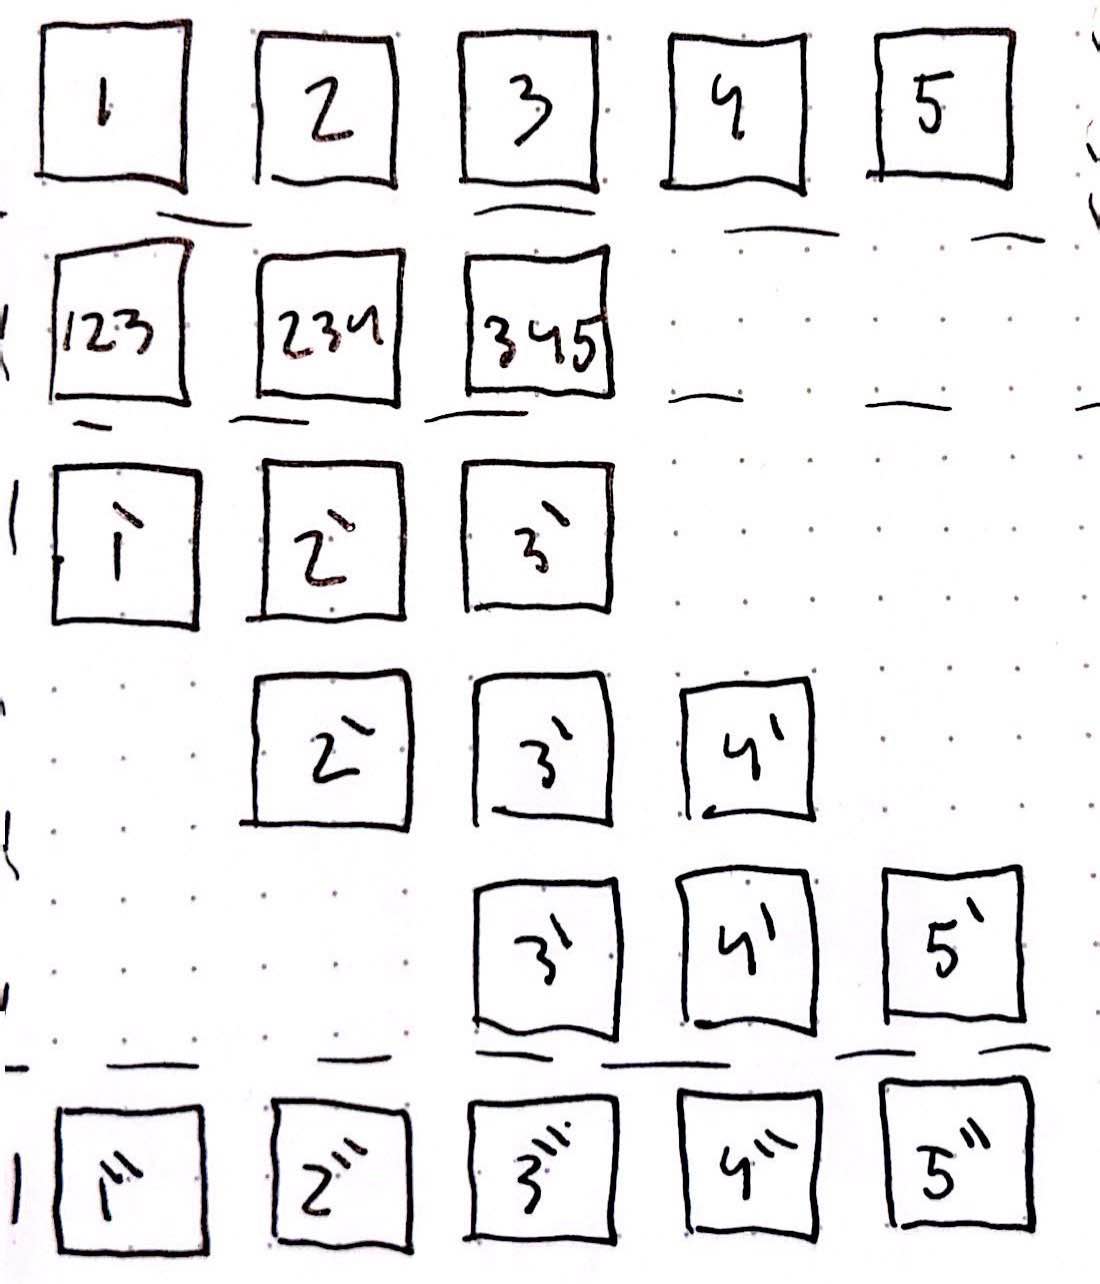 1 2 3 4 5
123 234 345
1' 2' 3'
2' 3' 4'
3' 4' 5'
1'' 2'' 3''' 4'' 5''